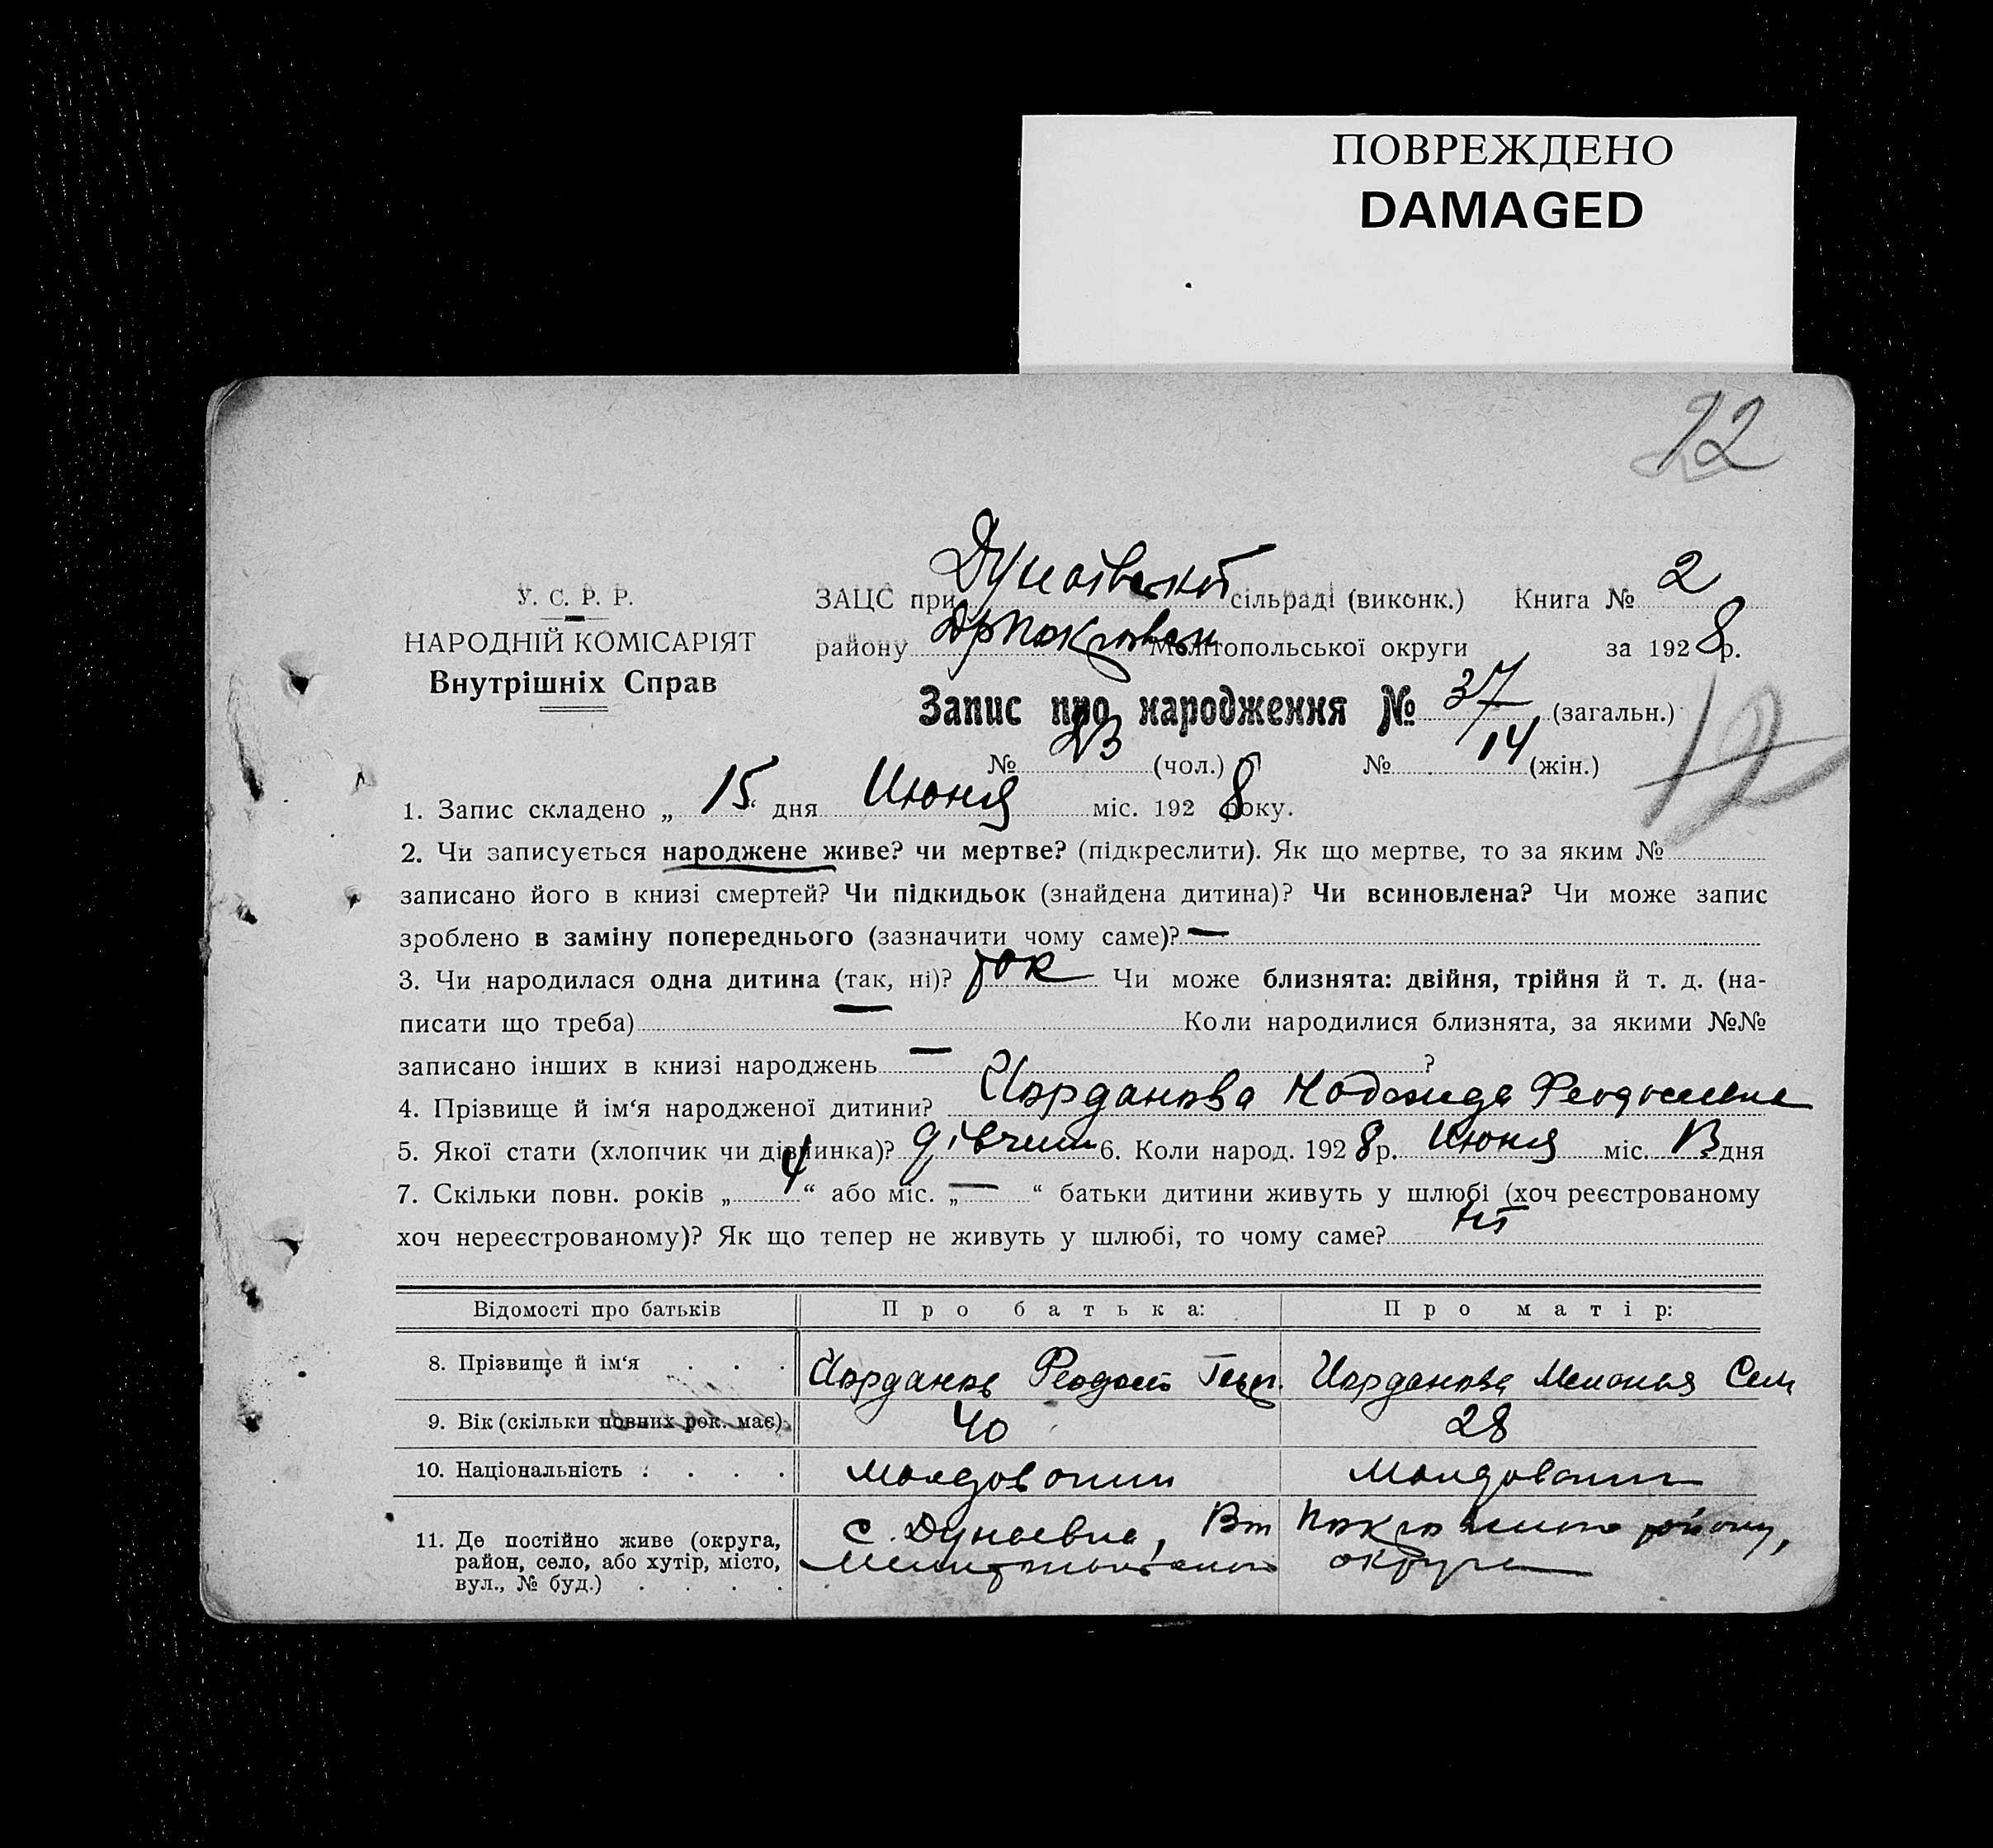 ПОВРЕЖДЕНО
DAMAGED
22
У. С. Р. Р.
НАРОДНІЙ КОМІСАРІЯТ
Внутрішніх Справ
ЗАЦС при Дунаївскої сільраді (виконк.) Книга № 2
району Мелітопольської округи за 1928 р.
Запис про народження № 37 (загальн.)
№ 23 (чол.) № 14 (жін.)
12
1. Запис складено „ 15 “ дня Июня міс. 1928 року.
2. Чи записується народжене живе? чи мертве? (підкреслити). Як що мертве, то за яким №
записано його в книзі смертей? Чи підкидьок (знайдена дитина)? Чи всиновлена? Чи може запис
зроблено в заміну попереднього (зазначити чому саме)? —
3. Чи народилася одна дитина (так, ні)? так Чи може близнята: двійня, трійня й т. д. (на-
писати що треба) Коли народилися близнята, за якими №№
записано інших в книзі народжень — ?
4. Прізвище й ім‘я народженої дитини? Иорданова Надежда Феодосиевна
5. Якої стати (хлопчик чи дівчинка)? дівчин 6. Коли народ. 1928 р. Июня міс. 13 дня
7. Скільки повн. років „ 4 “ або міс. „ — “ батьки дитини живуть у шлюбі (хоч реєстрованому
хоч нереєстрованому)? Як що тепер не живуть у шлюбі, то чому саме? ні
Відомості про батьків Про батька: Про матір:
8. Прізвище й ім‘я . . . Иорданов Феодосий Иорданова Меланья
9. Вік (скільки повних рок. має) 40 28
10. Національність . . . . Молдованин Молдованин
11. Де постійно живе (округа, с. Дунаевка, Вт Покровского району,
район, село, або хутір, місто, Мелитопольской округи
вул., № буд.) . . . .